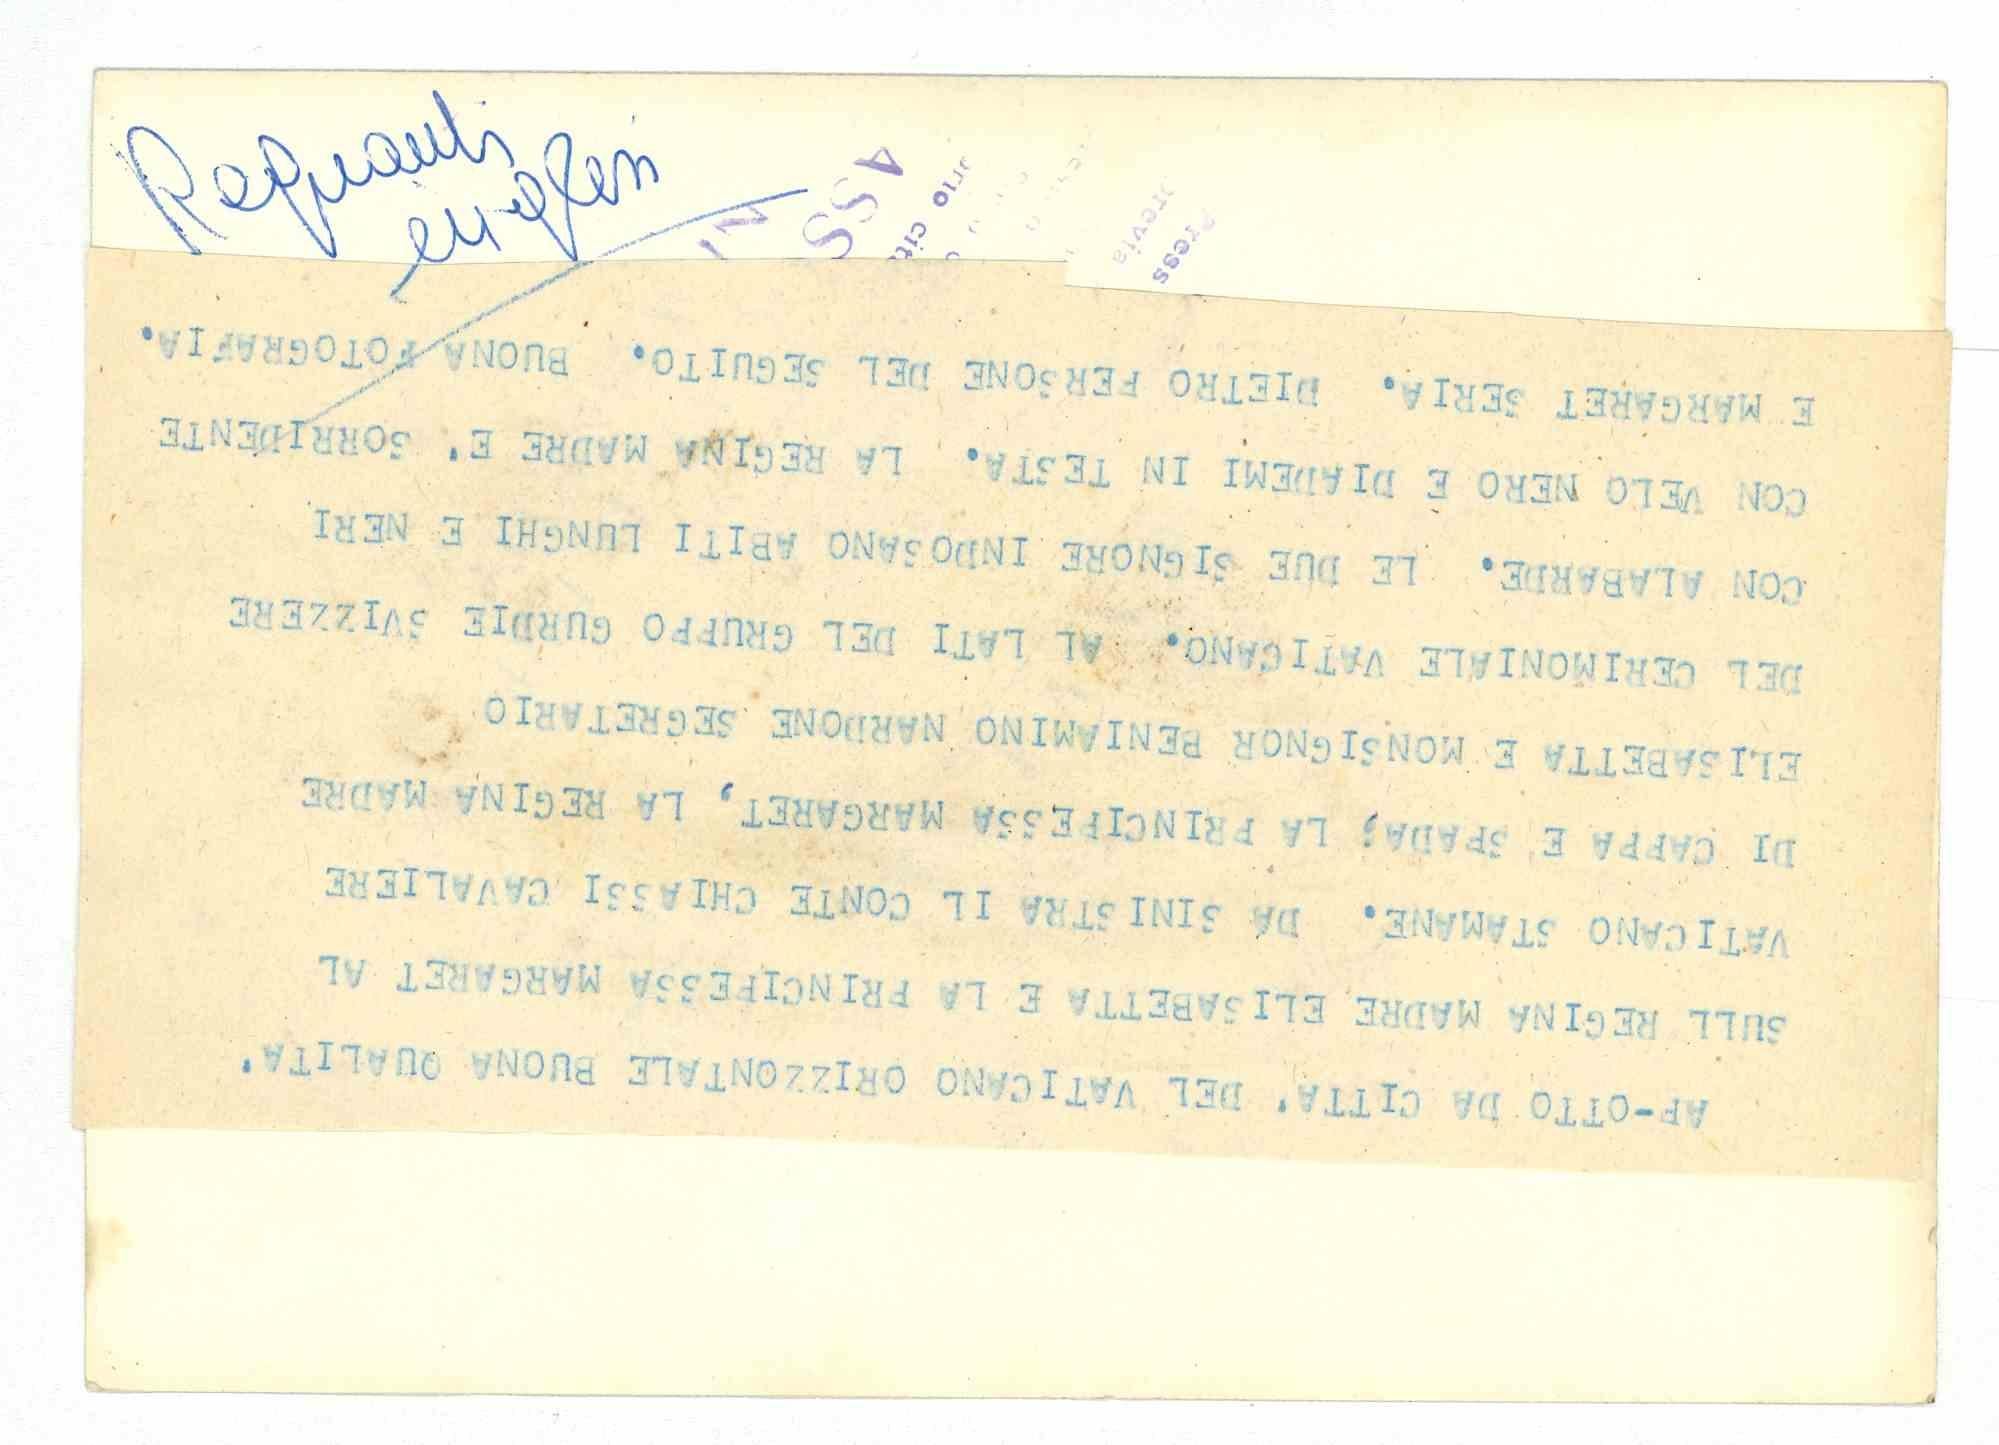 Regnanti
inglesi
ASS
IN
Press
AP-OTTO DA CITTA' DEL VATICANO ORIZZONTALE BUONA QUALITA'
SULL REGINA MADRE ELISABETTA E LA PRINCIPESSA MARGARET AL
VATICANO STAMANE. DA SINISTRA IL CONTE CHIASSI CAVALIERE
DI CAPPA E SPADA; LA PRINCIPESSA MARGARET, LA REGINA MADRE
ELISABETTA E MONSIGNOR BENIAMINO NARDONE SEGRETARIO
DEL CERIMONIALE VATICANO. AL LATI DEL GRUPPO GURDIE SVIZZERE
CON ALABARDE. LE DUE SIGNORE INDOSANO ABITI LUNGHI E NERI
CON VELO NERO E DIADEMI IN TESTA. LA REGINA MADRE E' SORRIDENTE
E MARGARET SERIA. DIETRO PERSONE DEL SEGUITO. BUONA FOTOGRAFIA.